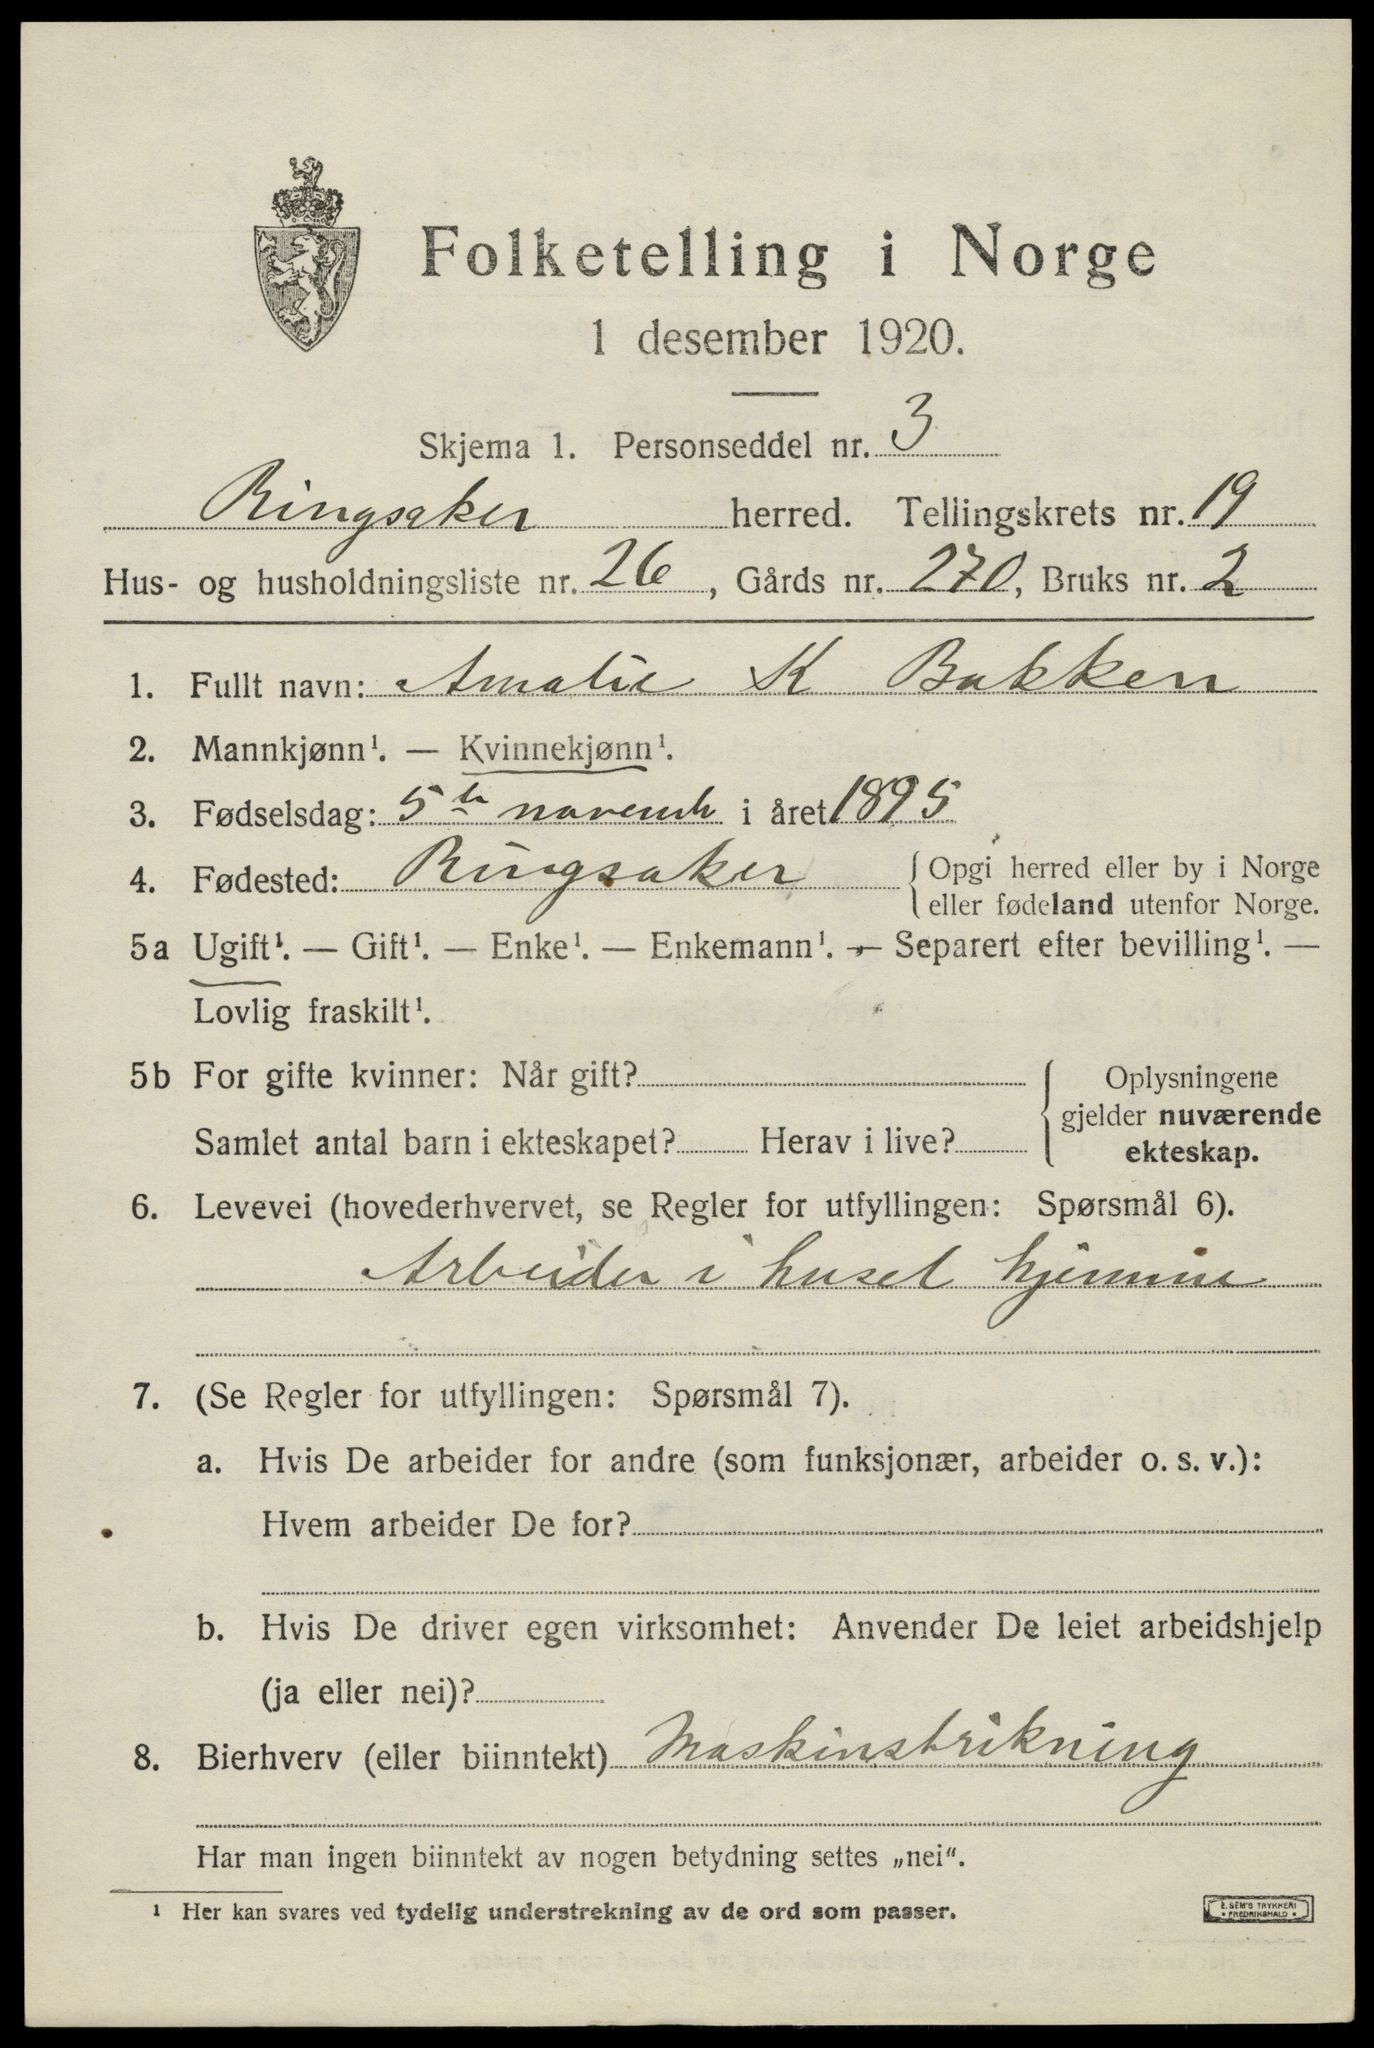 Folketelling i Norge
1 desember 1920.
Skjema 1. Personseddel nr. 3
Ringsaker herred. Tellingskrets nr. 19
Hus- og husholdningsliste nr. 26, Gårds nr. 270, Bruks nr. 2
1. Fullt navn: Amalie K Bakken
2. Mannkjønn¹. — Kvinnekjønn¹.
3. Fødselsdag: 5te novemb i året 1895
4. Fødested: Ringsaker { Opgi herred eller by i Norge
eller fødeland utenfor Norge.
5a Ugift¹. — Gift¹. — Enke¹. — Enkemann¹. — Separert efter bevilling¹. —
Lovlig fraskilt¹.
5b For gifte kvinner: Når gift?
Samlet antal barn i ekteskapet? Herav i live?
Oplysningene
gjelder nuværende
ekteskap.
6. Levevei (hovederhvervet, se Regler for utfyllingen: Spørsmål 6).
Arbeider i huset hjemme
7. (Se Regler for utfyllingen: Spørsmål 7).
a. Hvis De arbeider for andre (som funksjonær, arbeider o. s. v.):
Hvem arbeider De for?
b. Hvis De driver egen virksomhet: Anvender De leiet arbeidshjelp
(ja eller nei)?
8. Bierhverv (eller biinntekt) Maskinstrikning
Har man ingen biinntekt av nogen betydning settes „nei“.
¹ Her kan svares ved tydelig understrekning av de ord som passer.
E. SEM'S TRYKKERI
FREDRIKSHALD